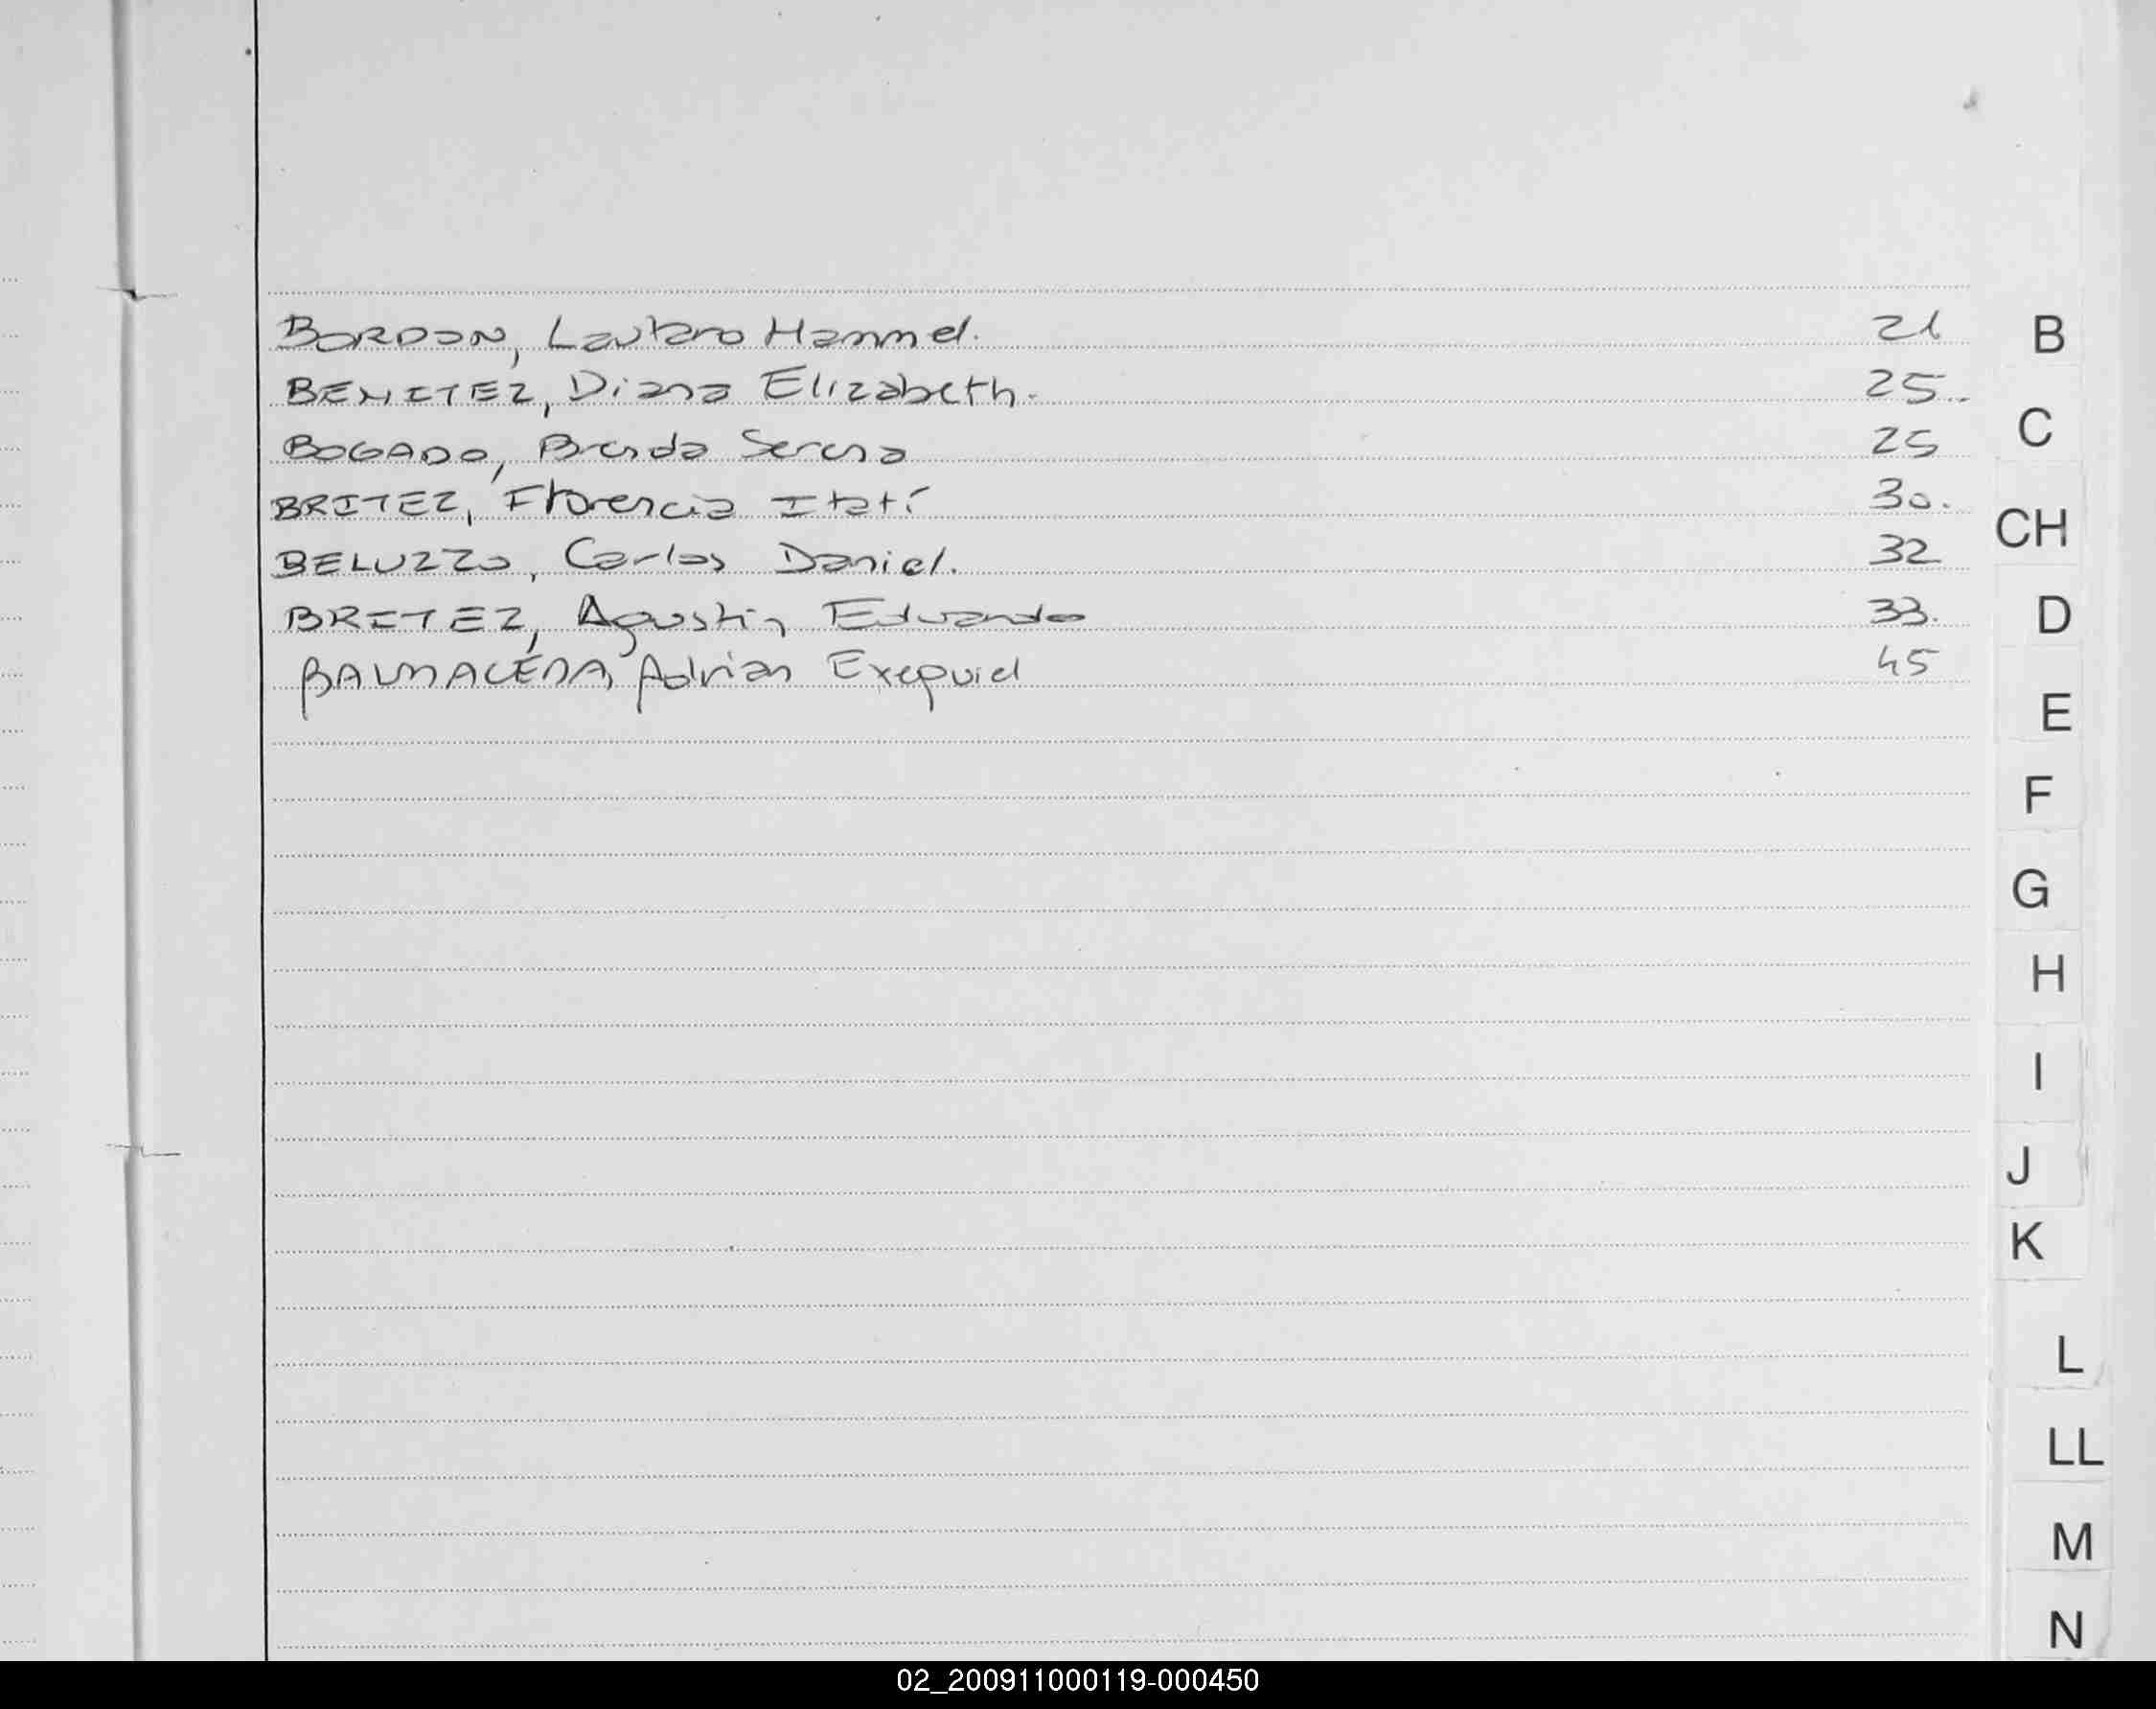 BORDON, Lautaro Hammel. 21
BENITEZ, Diana Elizabeth. 25.
BOGADO, Brenda Serena 25
BRITEZ, Florencia Itatí 30.
BELUZZO, Carlos Daniel. 32
BRITEZ, Agustin Eduardo 33.
BALMACEDA, Adrian Exequiel 45
B
C
CH
D
E
F
G
H
I
J
K
L
LL
M
N
02_200911000119-000450